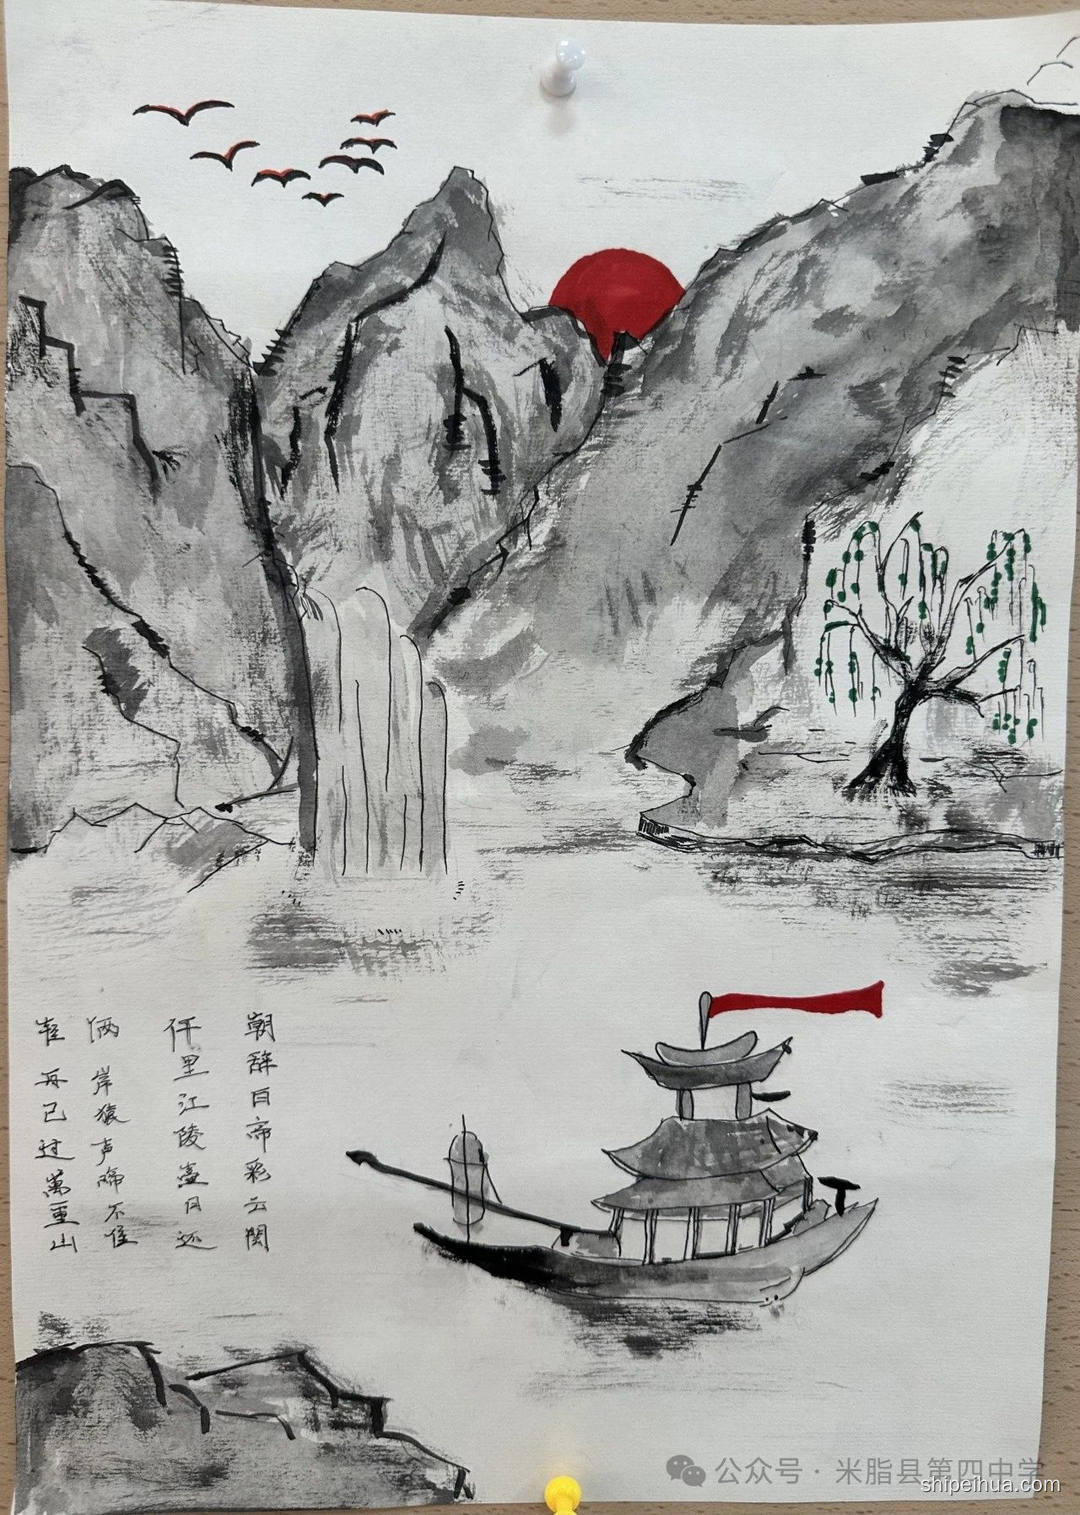 朝辞白帝彩云間
仟里江陵壹日还
俩岸猿声啼不住
轻舟已过萬重山
公众号·米脂县第四中学
shipeihua.com